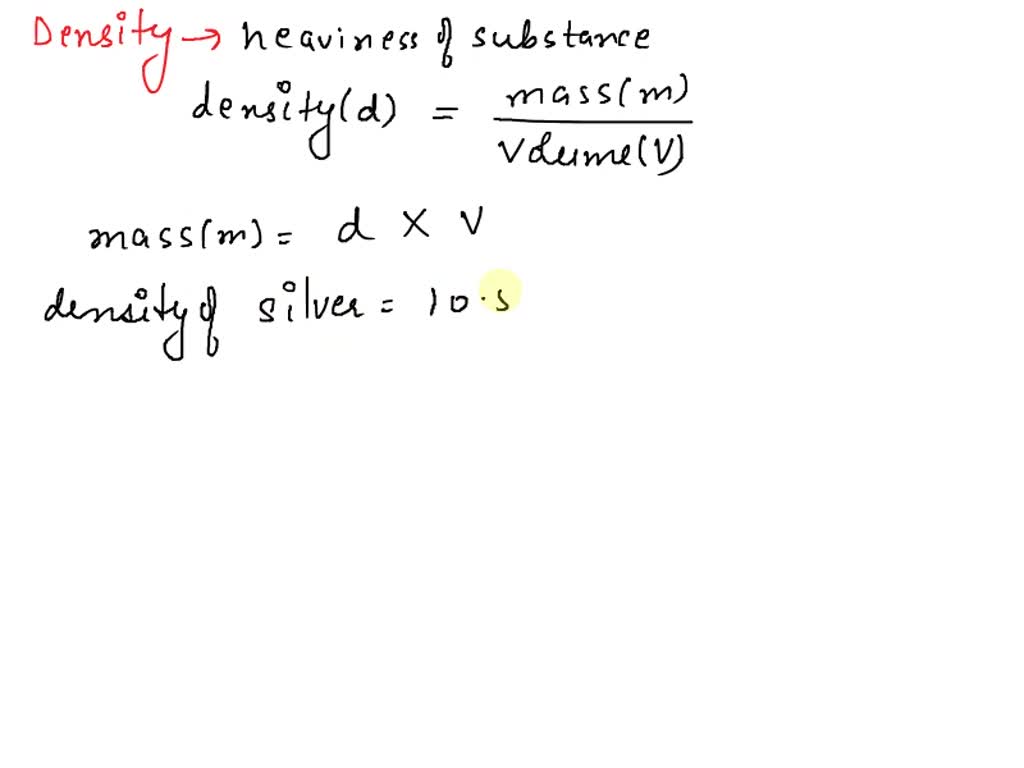 Density → heaviness of substance
density(d) = mass(m) / Volume(V)
mass(m) = d × V
density of silver = 10.5